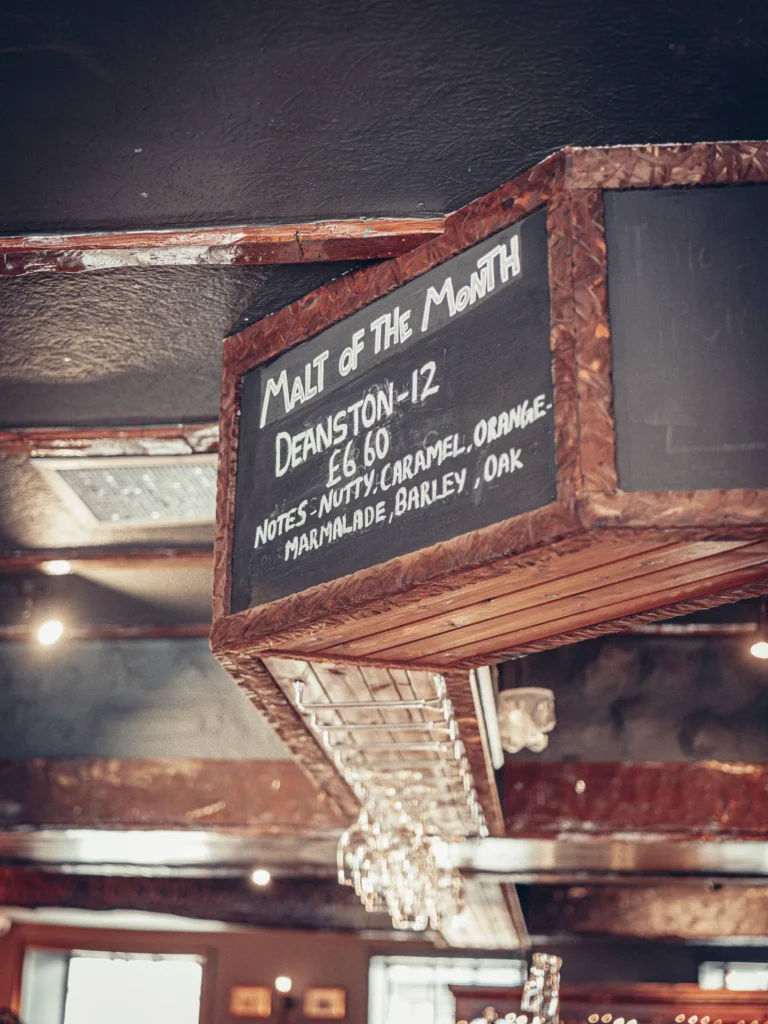 MALT OF THE MONTH
DEANSTON-12
£6 60
NOTES-NUTTY, CARAMEL, ORANGE-
MARMALADE, BARLEY, OAK